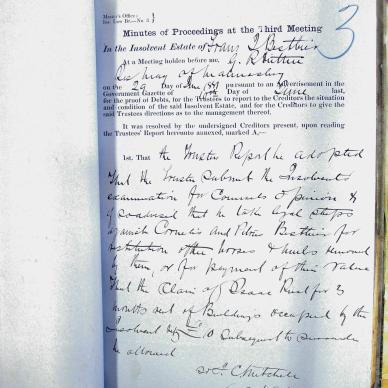 Master's Office:
3
Minutes of Proceedings at the Third Meeting
In the Insolvent Estate of Frans J Besthier
At a Meeting held before me,
on the 29 Day of June pursuant to an Advertisement in the
Government Gazette of Day of June last,
for the proof of Debts, for the Trustees to report to the Creditors the situation
and condition of the said Insolvent Estate, and for the Creditors to give the
said Trustees directions as to the management thereof.
It was resolved by the undersigned Creditors present, upon reading
the Trustees' Report hereunto annexed, marked A,—
1st. That the Trustees Report be adopted
That the Trustee submit the Insolvents
examination for Counsels opinion &
if so advised that he take legal steps
against Cornelis and Petrus Besthier for
restitution of the horses & mules removed
by them, or for payment of their value
That the Claim of Isaac for 3
months rent of Buildings occupied by the
Insolvent £ 10 subsequent to surrender
be allowed
C Mitchell